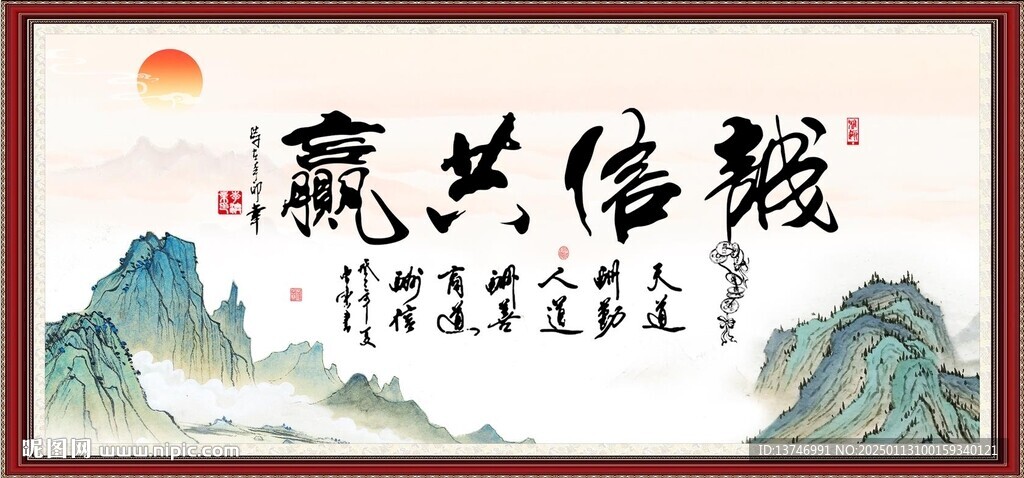 誠信共贏
天道
酬勤
人道
酬善
商道
酬信
昵图网 www.nipic.com
ID:13746991 NO:20250113100159340121